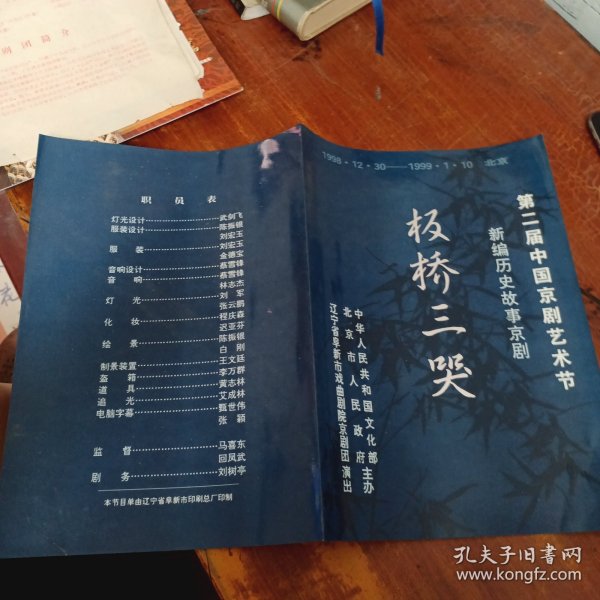 剧团简介
1998·12·30——1999·1·10 北京
第二届中国京剧艺术节
新编历史故事京剧
板桥三哭
中华人民共和国文化部
北京市人民政府
主办
辽宁省阜新市戏曲剧院京剧团演出
职员表
灯光设计 武剑飞
服装设计 陈振银
刘宏玉
服装 刘宏玉
金德宝
音响设计 蔡雪锋
音响 蔡雪锋
林志杰
灯光 刘军
张云鹏
化妆 程庆森
迟亚芬
绘景 陈振银
白刚
制景装置 王文廷
盔箱 李万群
道具 黄志林
追光 艾成林
电脑字幕 甄世伟
张颖
监督 马喜东
回凤武
剧务 刘树亭
本节目单由辽宁省阜新市印刷总厂印制
孔夫子旧书网
www.kongfz.com